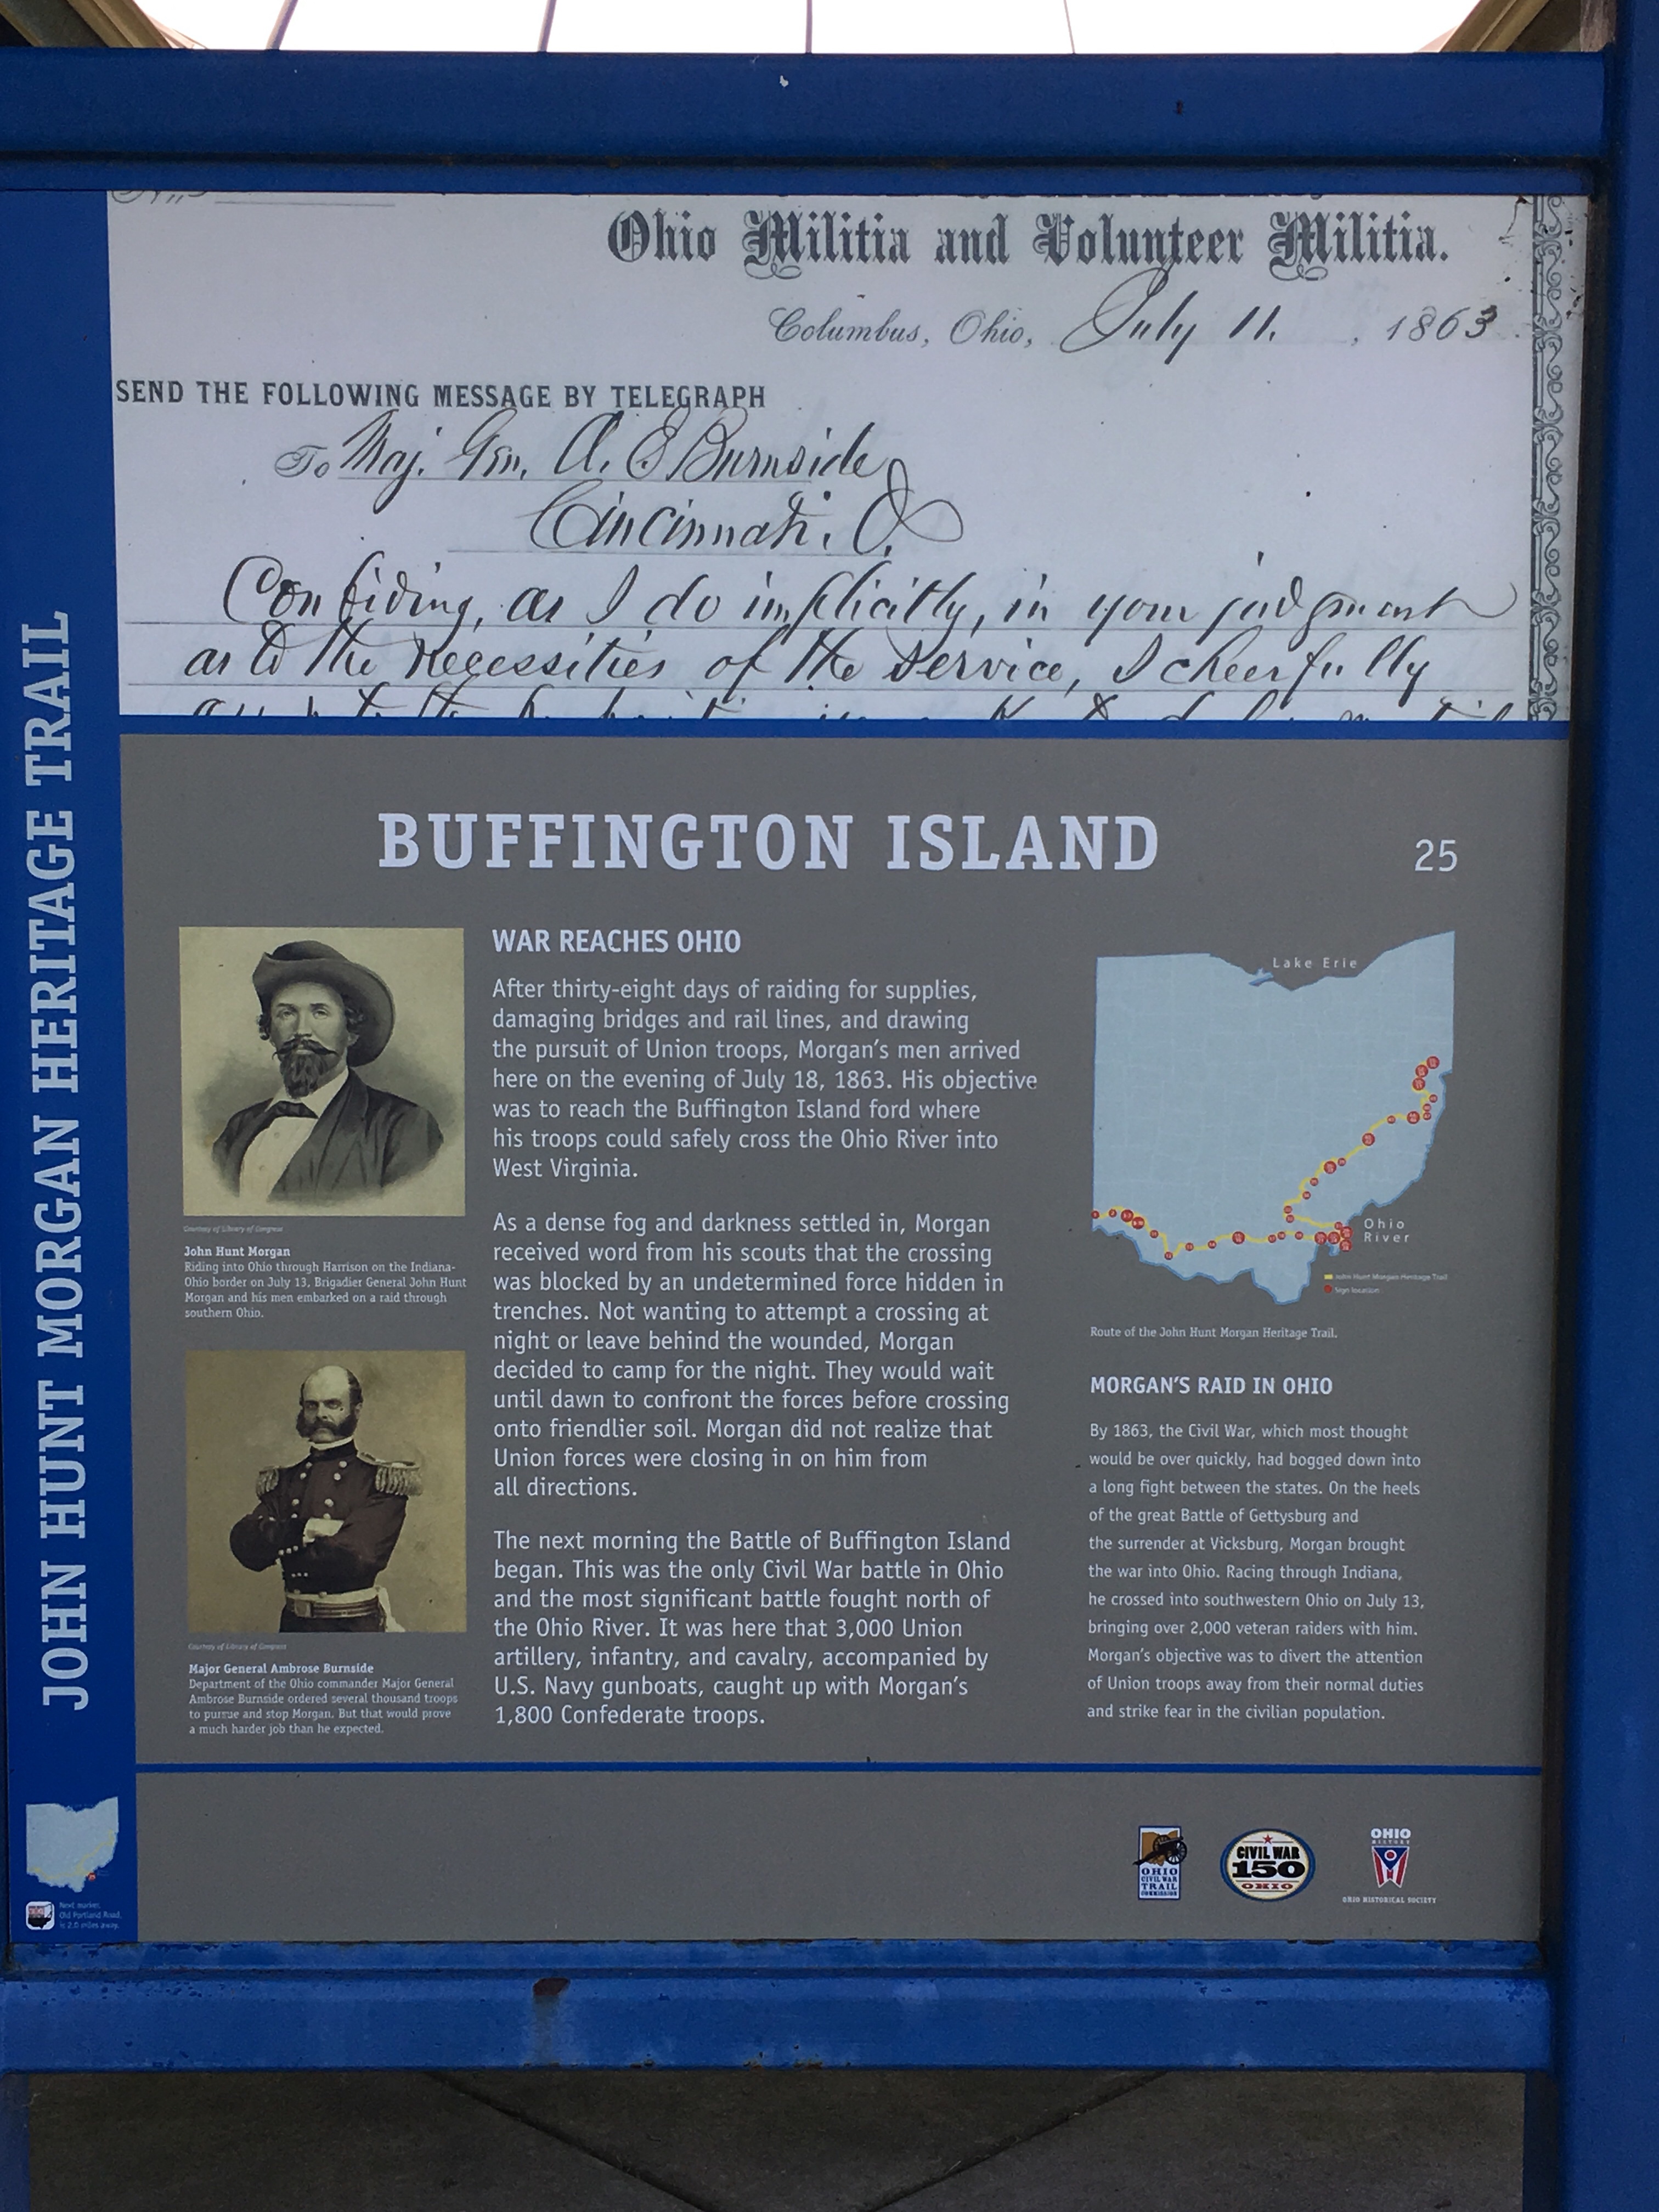 Ohio Militia and Volunteer Militia.
Columbus, Ohio, July 11. , 1863.
SEND THE FOLLOWING MESSAGE BY TELEGRAPH
To Maj. Gen. A. E Burnside
Cincinnati. O.
Confiding, as I do implicitly, in your judgment
as to the necessities of the service, I cheerfully
JOHN HUNT MORGAN HERITAGE TRAIL
BUFFINGTON ISLAND
25
Courtesy of Library of Congress
John Hunt Morgan
Riding into Ohio through Harrison on the Indiana-
Ohio border on July 13, Brigadier General John Hunt
Morgan and his men embarked on a raid through
southern Ohio.
Courtesy of Library of Congress
Major General Ambrose Burnside
Department of the Ohio commander Major General
Ambrose Burnside ordered several thousand troops
to pursue and stop Morgan. But that would prove
a much harder job than he expected.
WAR REACHES OHIO
After thirty-eight days of raiding for supplies,
damaging bridges and rail lines, and drawing
the pursuit of Union troops, Morgan's men arrived
here on the evening of July 18, 1863. His objective
was to reach the Buffington Island ford where
his troops could safely cross the Ohio River into
West Virginia.
As a dense fog and darkness settled in, Morgan
received word from his scouts that the crossing
was blocked by an undetermined force hidden in
trenches. Not wanting to attempt a crossing at
night or leave behind the wounded, Morgan
decided to camp for the night. They would wait
until dawn to confront the forces before crossing
onto friendlier soil. Morgan did not realize that
Union forces were closing in on him from
all directions.
The next morning the Battle of Buffington Island
began. This was the only Civil War battle in Ohio
and the most significant battle fought north of
the Ohio River. It was here that 3,000 Union
artillery, infantry, and cavalry, accompanied by
U.S. Navy gunboats, caught up with Morgan's
1,800 Confederate troops.
Lake Erie
Ohio
River
John Hunt Morgan Heritage Trail
Sign location
Route of the John Hunt Morgan Heritage Trail.
MORGAN'S RAID IN OHIO
By 1863, the Civil War, which most thought
would be over quickly, had bogged down into
a long fight between the states. On the heels
of the great Battle of Gettysburg and
the surrender at Vicksburg, Morgan brought
the war into Ohio. Racing through Indiana,
he crossed into southwestern Ohio on July 13,
bringing over 2,000 veteran raiders with him.
Morgan's objective was to divert the attention
of Union troops away from their normal duties
and strike fear in the civilian population.
Next marker,
Old Portland Road,
is 2.0 miles away.
OHIO
CIVIL WAR
TRAIL
COMMISSION
CIVIL WAR
150
OHIO
OHIO
HISTORY
OHIO HISTORICAL SOCIETY